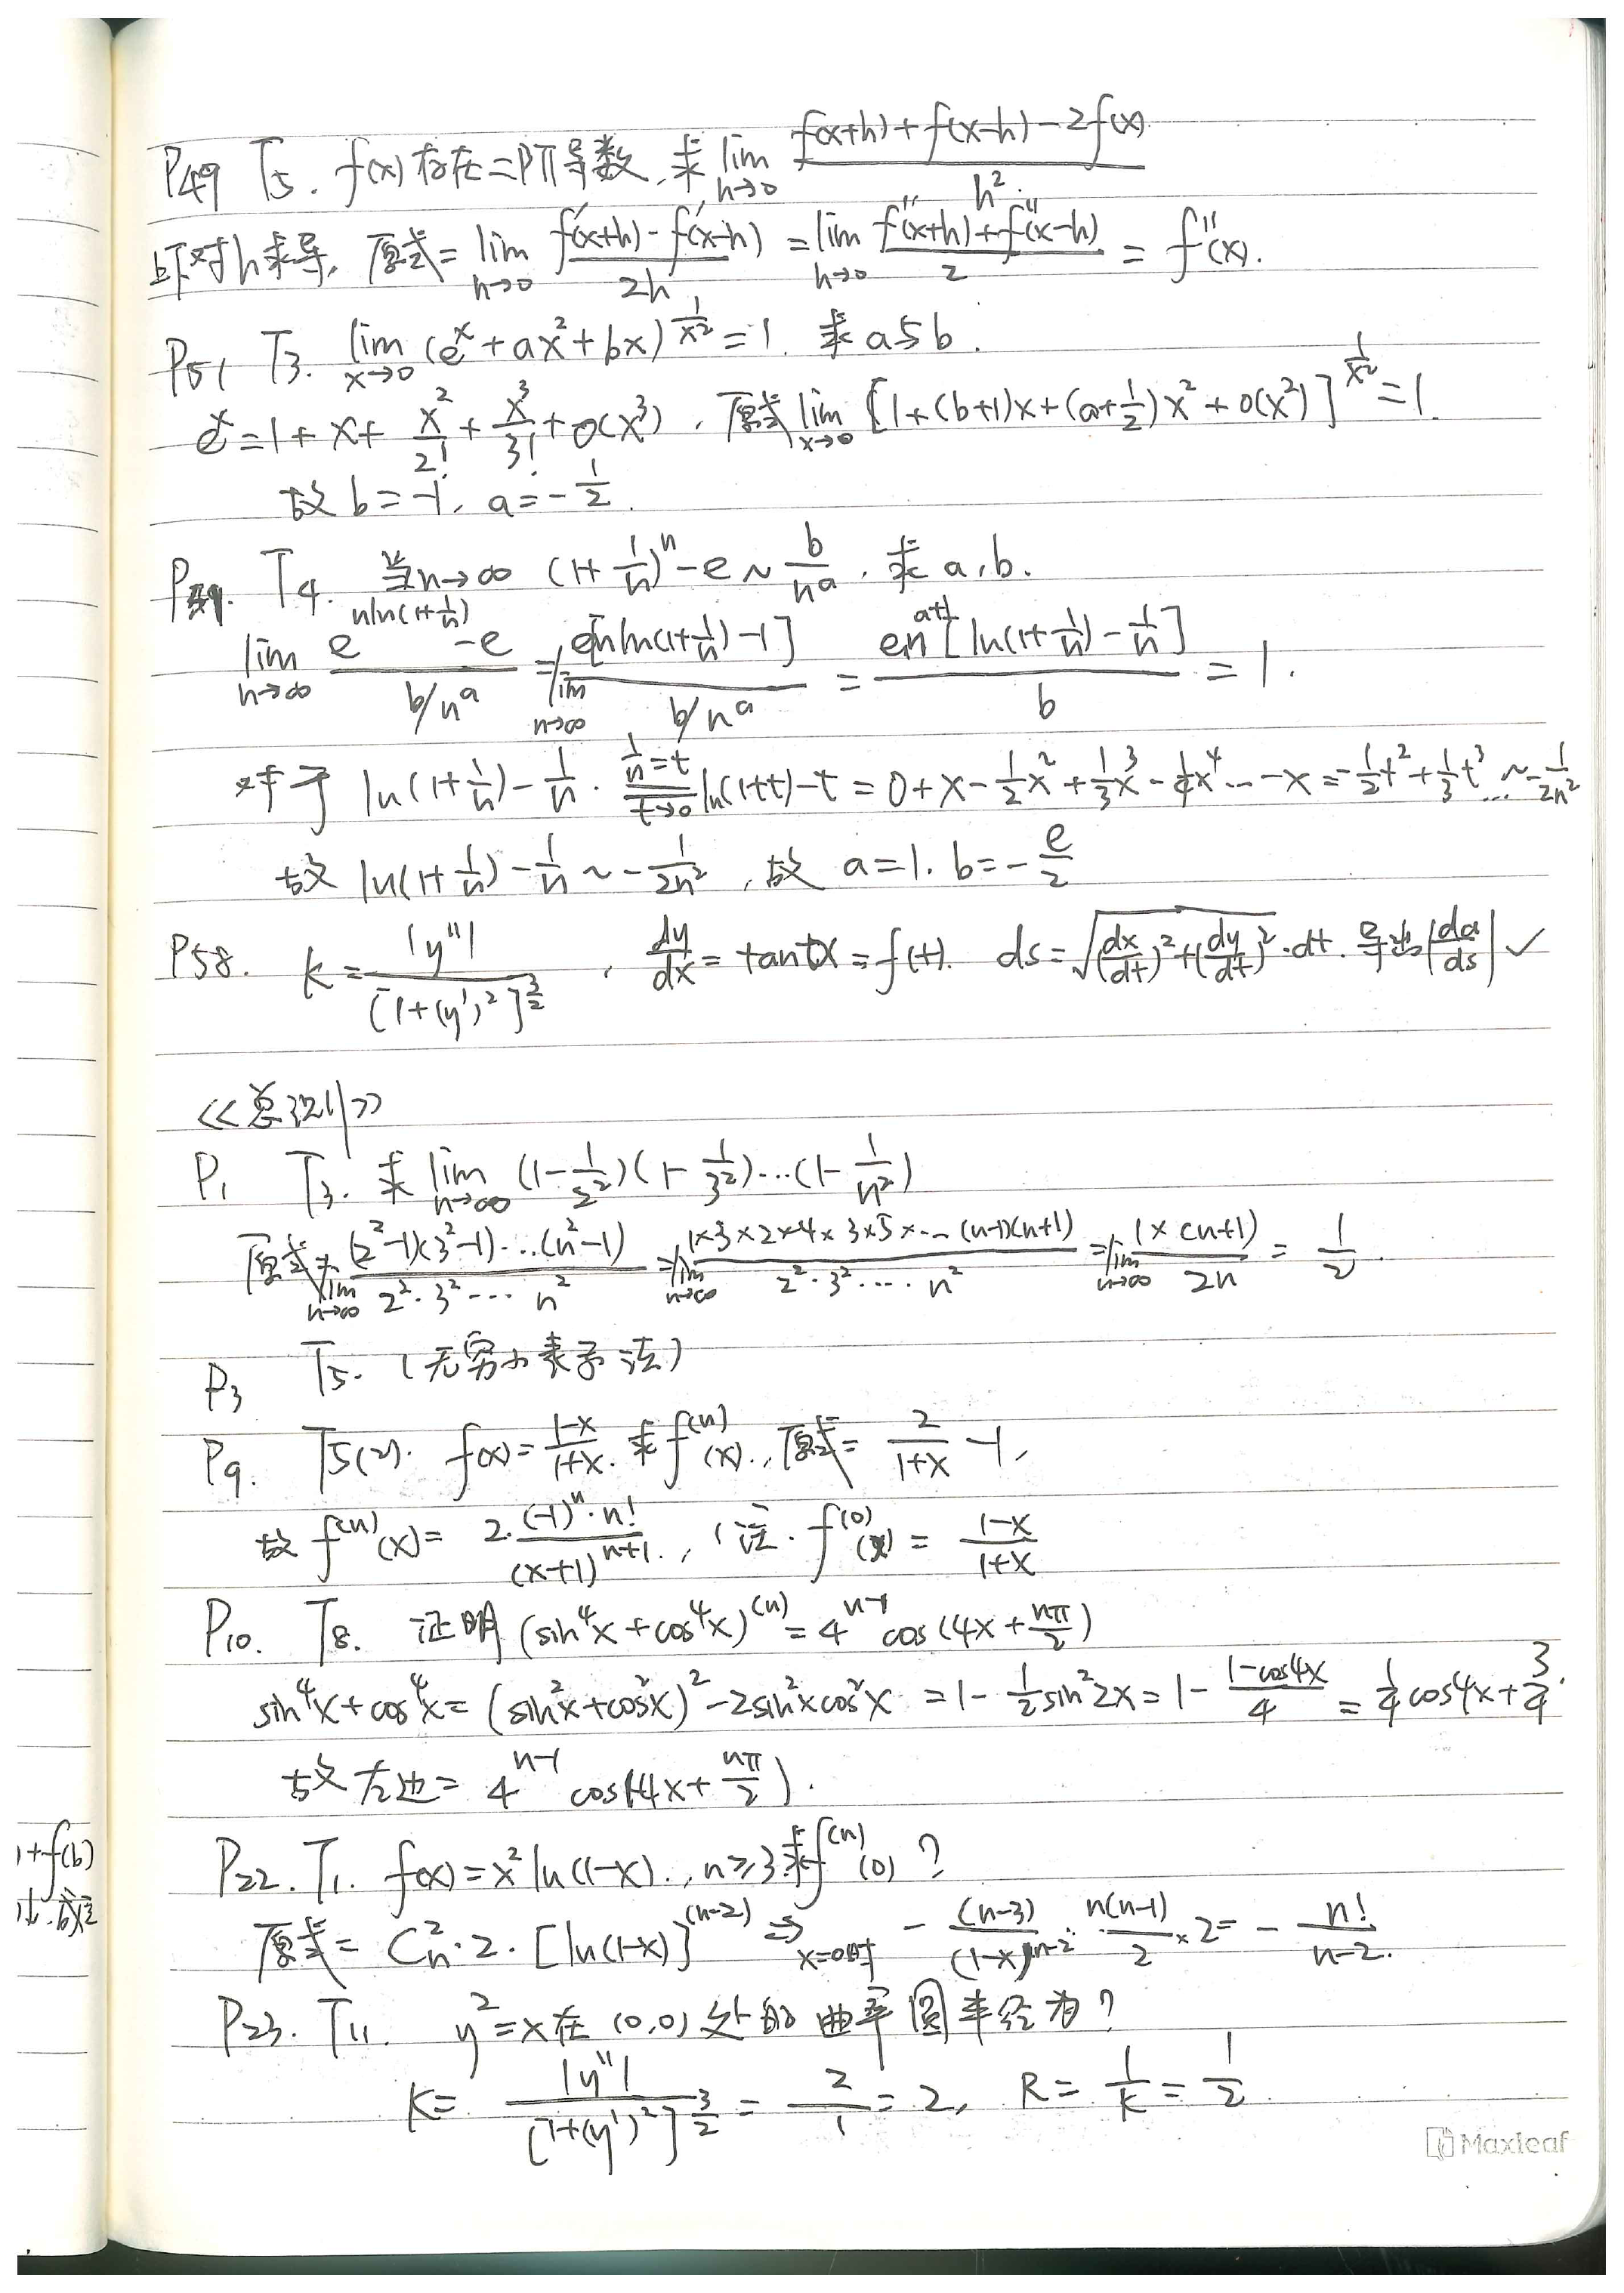 P49 T5. f(x)存在二阶导数,求 lim_{h→0} (f(x+h)+f(x-h)-2f(x))/h².
上下对h求导, 原式= lim_{h→0} (f'(x+h)-f'(x-h))/2h = lim_{h→0} (f''(x+h)+f''(x-h))/2 = f''(x).
P51 T3. lim_{x→0} (e^x+ax²+bx)^{1/x²}=1. 求a与b.
e^x=1+x+x²/2!+x³/3!+o(x³), 原式 lim_{x→0} [1+(b+1)x+(a+1/2)x²+o(x²)]^{1/x²}=1.
故 b=-1, a=-1/2.
T4. 当n→∞ (1+1/n)^n-e~b/n^a, 求a,b.
lim_{n→∞} (e^{nln(1+1/n)}-e)/(b/n^a) = lim_{n→∞} e[nln(1+1/n)-1]/(b/n^a) = en^{a+1}[ln(1+1/n)-1/n]/b = 1.
对于 ln(1+1/n)-1/n. (1/n=t, t→0) ln(1+t)-t=0+x-1/2x²+1/3x³-1/4x⁴...-x=-1/2t²+1/3t³...~-1/2n²
故 ln(1+1/n)-1/n~-1/2n², 故 a=1. b=-e/2
P58. k=|y''|/[1+(y')²]^{3/2}, dy/dx=tanα=f(t). ds=√((dx/dt)²+(dy/dt)²)·dt. 导出|dα/ds| ✓
《总习引》
P1 T3. 求 lim_{n→∞} (1-1/2²)(1-1/3²)...(1-1/n²)
原式= lim_{n→∞} (2²-1)(3²-1)...(n²-1)/2²·3²...n² = lim_{n→∞} 1×3×2×4×3×5×...(n-1)(n+1)/2²·3²....n² = lim_{n→∞} 1×(n+1)/2n = 1/2.
P3 T5. (无穷小表示法)
P9. T5(2). f(x)=(1-x)/(1+x). 求f^{(n)}(x)., 原式=2/(1+x)-1,
故 f^{(n)}(x)=2·(-1)^n·n!/(x+1)^{n+1}., (注. f^{(0)}(x)=(1-x)/(1+x)
P10. T8. 证明(sin⁴x+cos⁴x)^{(n)}=4^{n-1}cos(4x+nπ/2)
sin⁴x+cos⁴x=(sin²x+cos²x)²-2sin²xcos²x=1-1/2sin²2x=1-(1-cos4x)/4=1/4cos4x+3/4.
故左边=4^{n-1}cos(4x+nπ/2).
P22. T1. f(x)=x²ln(1-x)., n≥3,求f^{(n)}(0)?
原式=C_n²·2·[ln(1-x)]^{(n-2)} ⇒_{x=0时} -(n-3)/(1-x)^{n-2}·n(n-1)/2×2=-n!/(n-2).
P23. T11. y²=x在(0,0)处的曲率圆半径为?
K=|y''|/[1+(y')²]^{3/2}=2/1=2, R=1/k=1/2
1+f(b)
Maxleaf